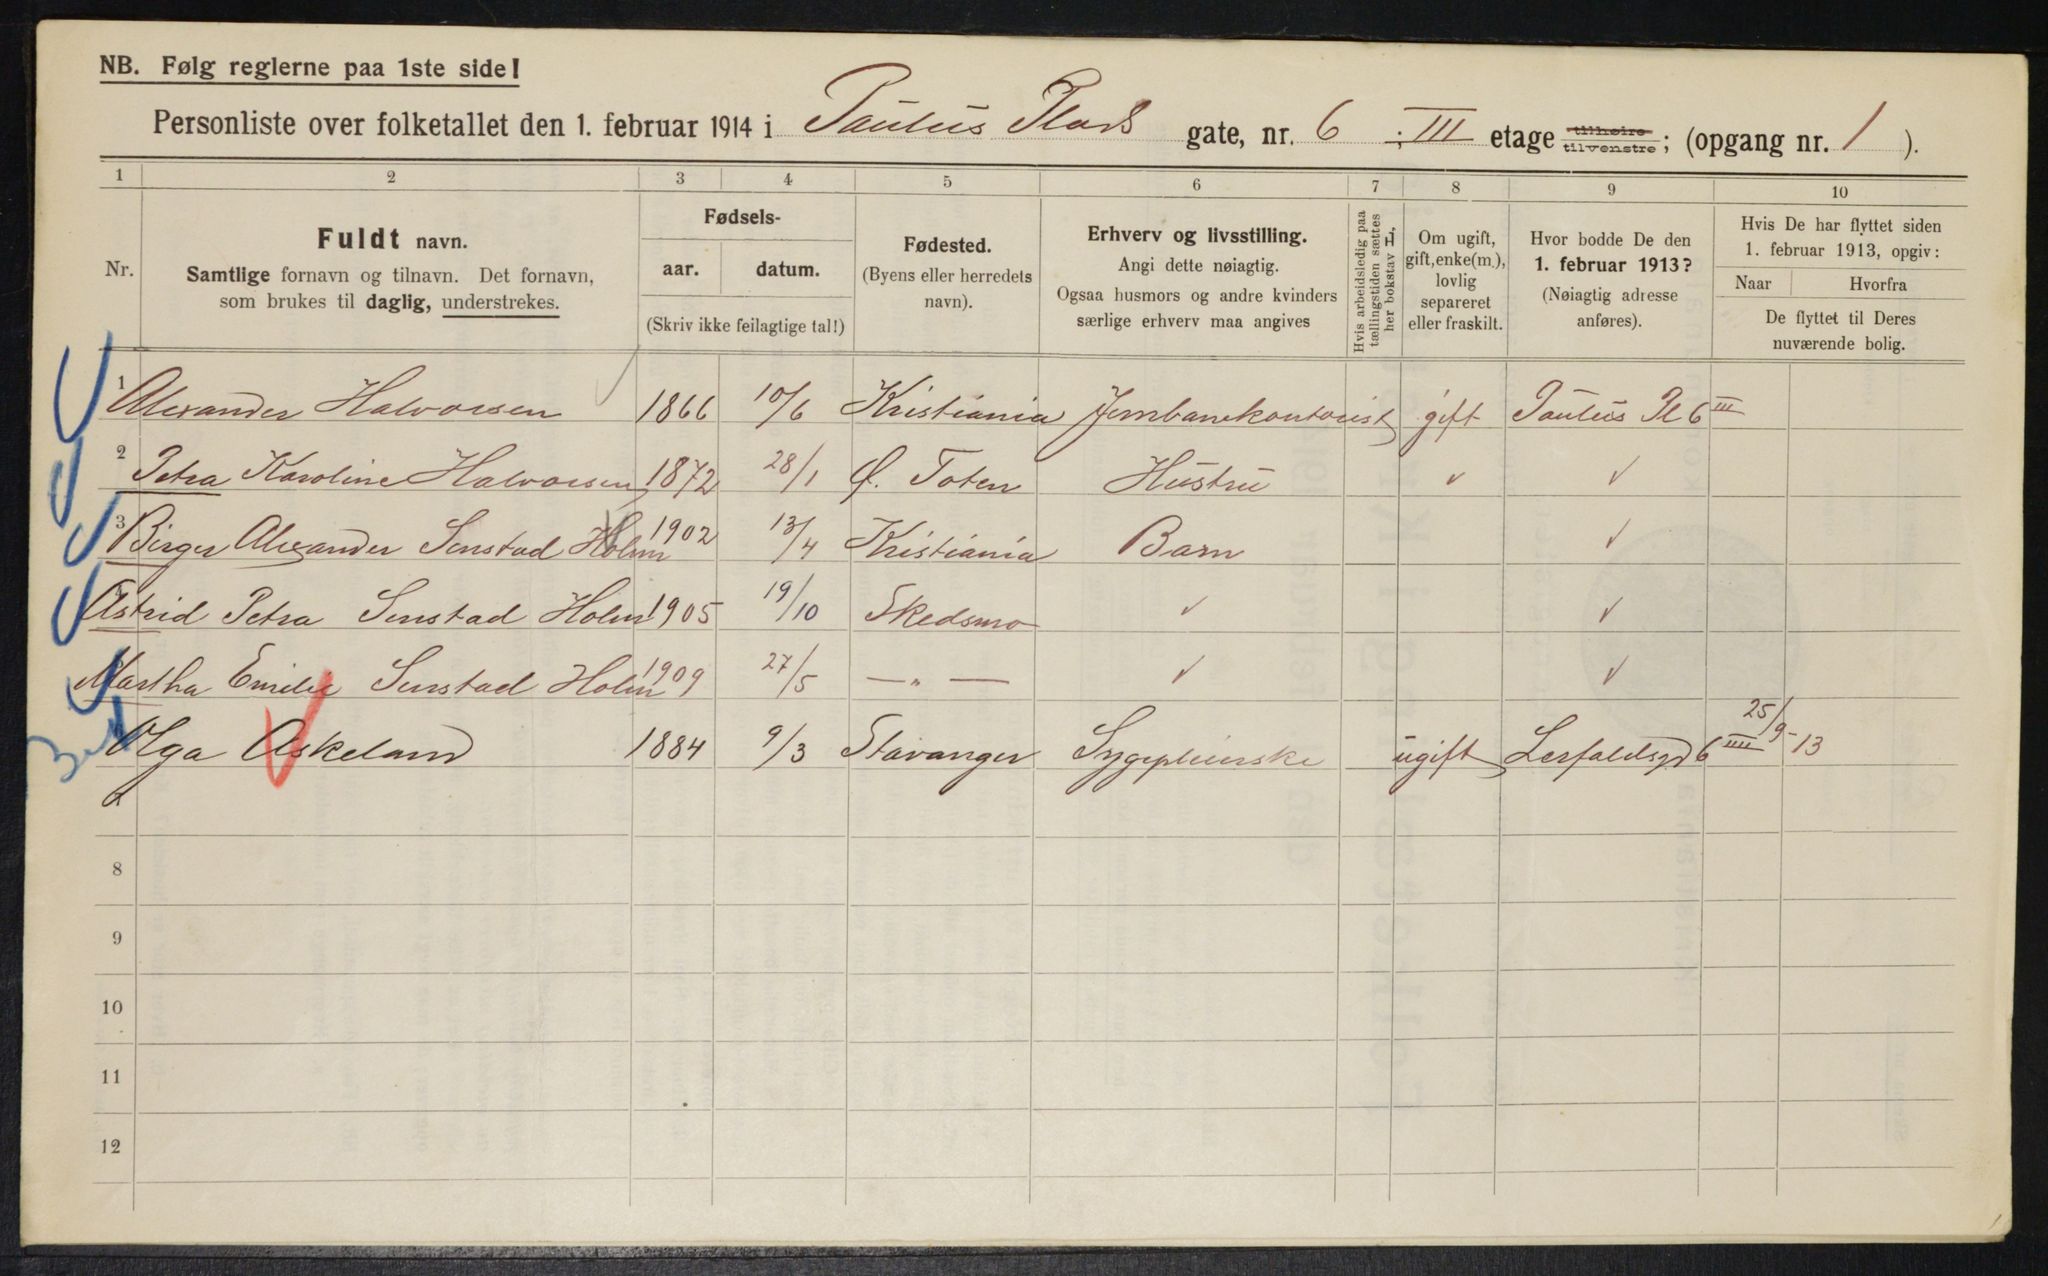 NB. Følg reglerne paa 1ste side!
Personliste over folketallet den 1. februar 1914 i Paulus Plads gate, nr. 6 ; III etage tilhøire tilvenstre; (opgang nr. 1).
1 2 3 4 5 6 7 8 9 10
Nr.
Fuldt navn.
Samtlige fornavn og tilnavn. Det fornavn,
som brukes til daglig, understrekes.
Fødsels-
aar. datum.
(Skriv ikke feilagtige tal!)
Fødested.
(Byens eller herredets
navn).
Erhverv og livsstilling.
Angi dette nøiagtig.
Ogsaa husmors og andre kvinders
særlige erhverv maa angives
Hvis arbeidsledig paa
tællingstiden sættes
her bokstav L,
Om ugift,
gift, enke(m.),
lovlig
separeret
eller fraskilt.
Hvor bodde De den
1. februar 1913?
(Nøiagtig adresse
anføres).
Hvis De har flyttet siden
1. februar 1913, opgiv:
Naar Hvorfra
De flyttet til Deres
nuværende bolig.
1 Alexander Halvorsen 1866 10/6 Kristiania Jernbanekontorist gift Paulus Pl 6 III
2 Petra Karoline Halvorsen 1872 28/1 Ø. Toten Hustru
3 Birger Alexander Senstad Holm 1902 13/4 Kristiania Barn
Astrid Petra Senstad Holm 1905 19/10 Skedsmo
Martha Emilie Senstad Holm 1909 27/5 — " —
Olga Askeland 1884 9/3 Stavanger Sygepleierske ugift Lerfaldsgd 6 IIII 25/9-13
8
9
10
11
12